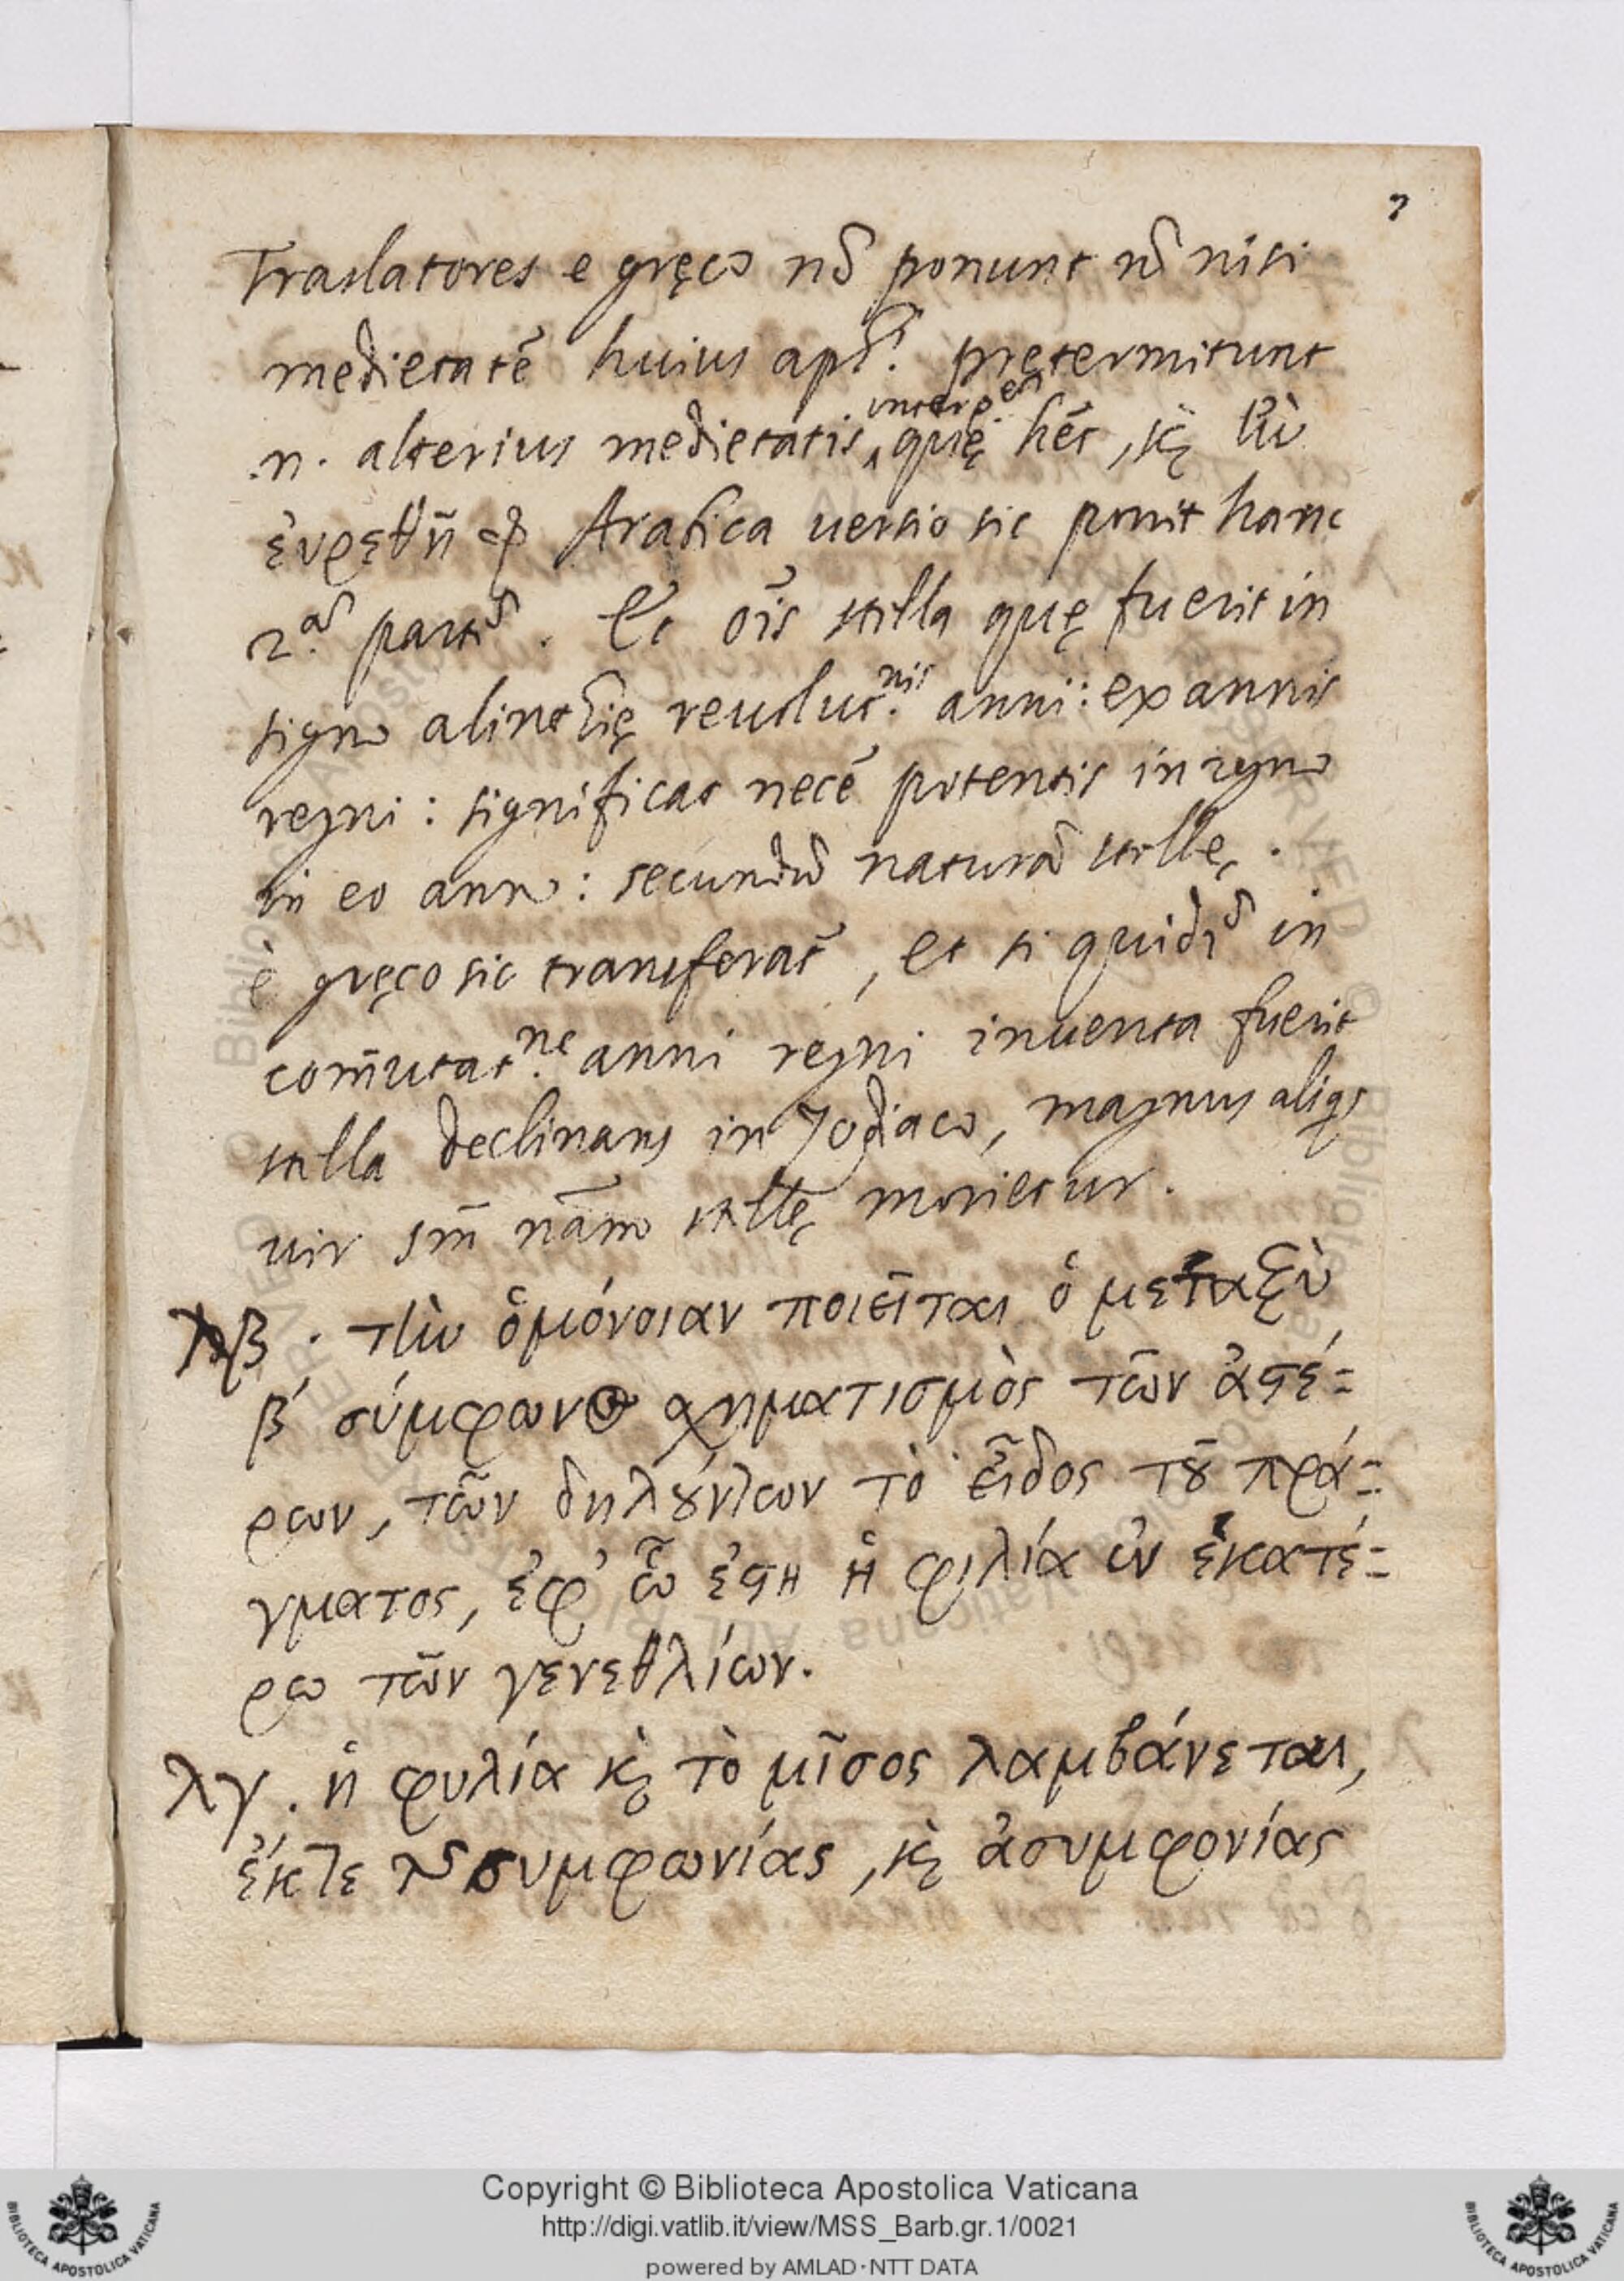 7
Traslatores e gręco nõ ponunt nõ nisi
medietatē huius apħ. pręternmitunt
.n. alterius medietatis, quę hēt, κ̀ τὺ
εὑρεθῆ Arabica uersio sic ponit hanc
2.ã partẽ. Et oīs stella quę fuerit in
signo alintħię reuoluc.nis anni: ex annis
regni: significat necē potentis in regno
in eo anno: secundũ naturã stellę.
è gręco sic transferāt, et si quidẽ in
com̄utat.ne anni regni inuenta fuerit
stella declinans in Zodiaco, magnus aliqs
uir sm̄ nãm stellę morietur.
λβ. τὴν ὁμόνοιαν ποιεῖται ὁ μεταξὺ
β́ σύμφωνος χηματισμὸς τῶν ἀστέ=
ρων, τῶν δηλούντων τὸ εἶδος τοῦ πρά=
γματος, ἐφ' ᾧ ἐστι ἡ φιλία ἐν ἑκατέ=
ρω τῶν γενεθλίων.
λγ. ἡ φυλία κ̀ τὸ μῖσος λαμβάνεται,
ἔκτε τῆς συμφωνίας, κ̀ ἀσυμφονίας
Copyright © Biblioteca Apostolica Vaticana
http://digi.vatlib.it/view/MSS_Barb.gr.1/0021
powered by AMLAD·NTT DATA